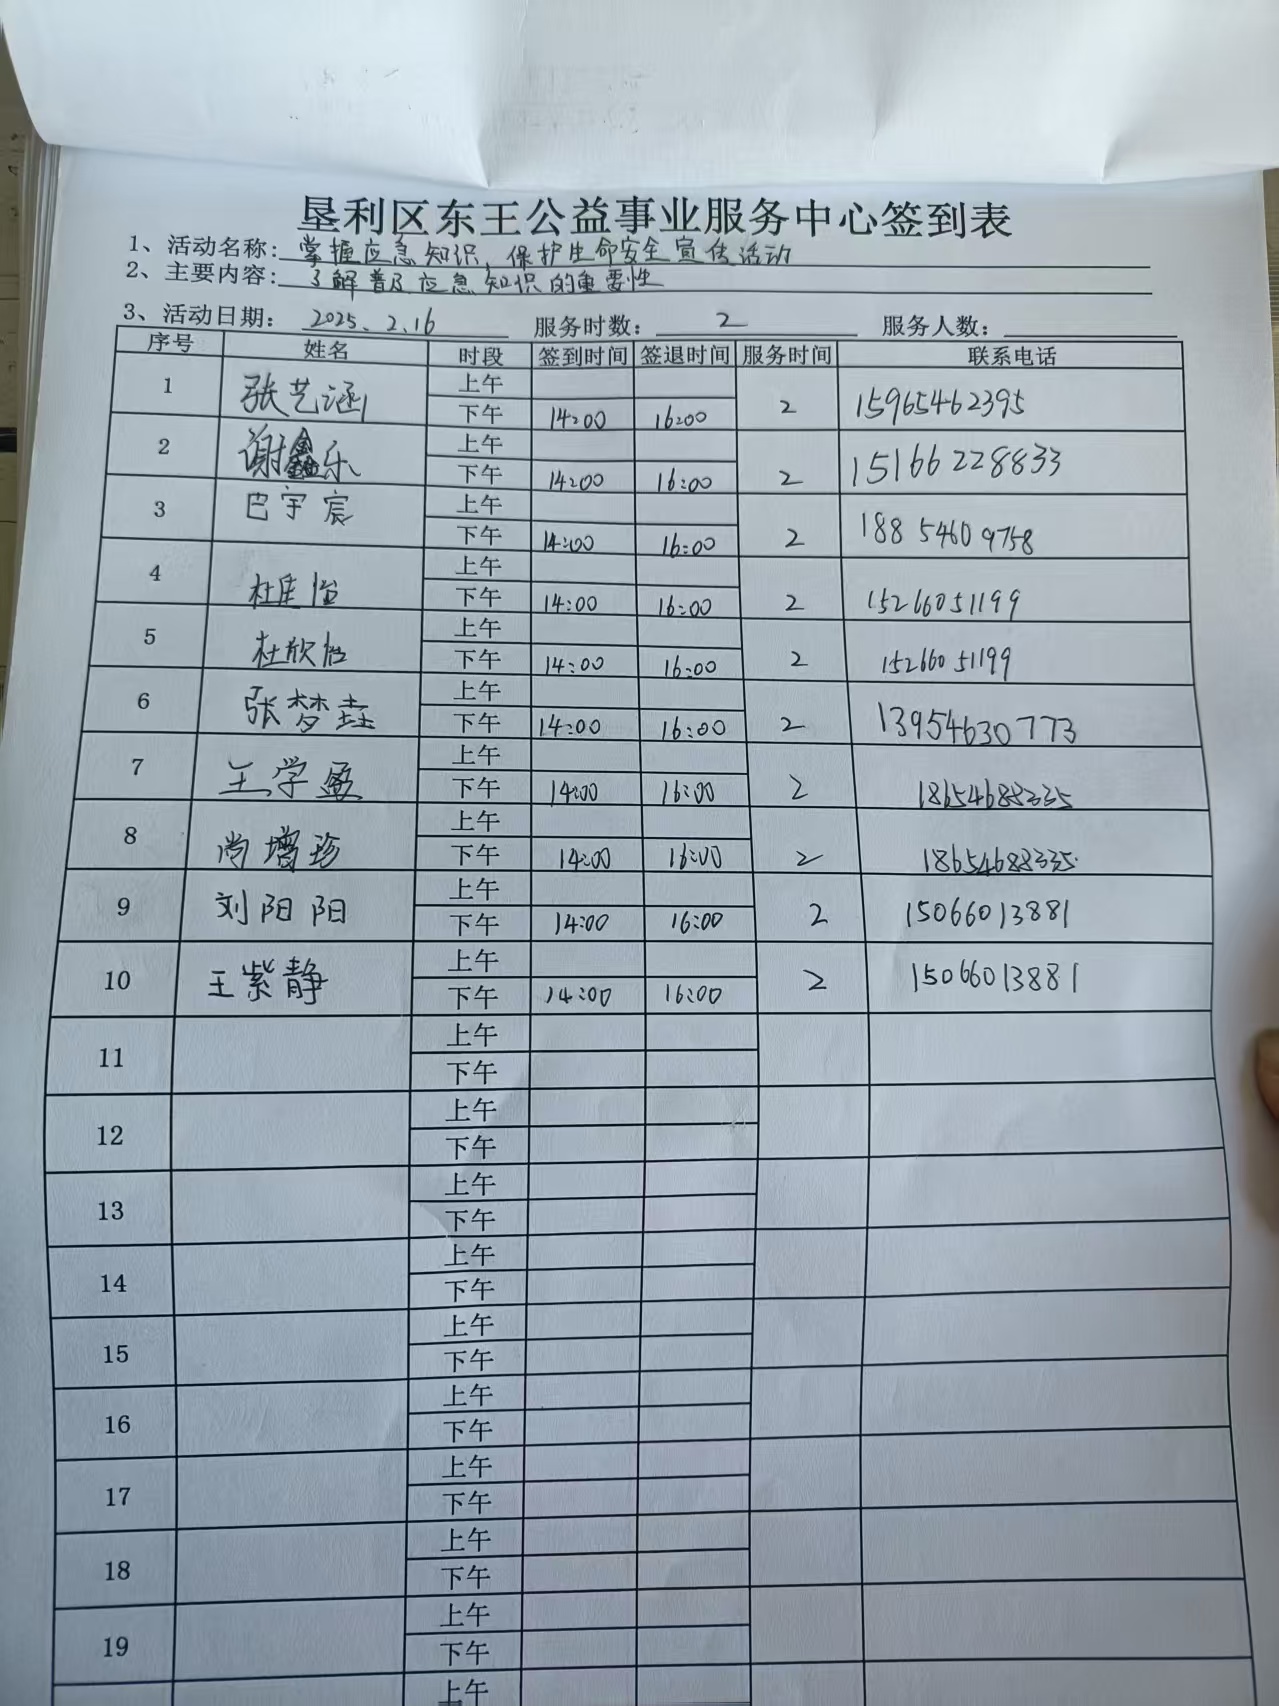 垦利区东王公益事业服务中心签到表
1、活动名称: 掌握应急知识,保护生命安全宣传活动
2、主要内容: 了解普及应急知识的重要性
3、活动日期: 2025.2.16 服务时数: 2 服务人数:
序号 姓名 时段 签到时间 签退时间 服务时间 联系电话
1 张艺涵 上午 2 15965462395
下午 14:00 16:00
2 谢鑫乐 上午 2 15166228833
下午 14:00 16:00
3 巴宇宸 上午 2 18854609758
下午 14:00 16:00
4 杜佳怡 上午 2 15266051199
下午 14:00 16:00
5 杜欣怡 上午 2 15266051199
下午 14:00 16:00
6 张梦垚 上午 2 13954630773
下午 14:00 16:00
7 王学盈 上午 2 18654688335
下午 14:00 16:00
8 尚增珍 上午 2 18654688335
下午 14:00 16:00
9 刘阳阳 上午 2 15066013881
下午 14:00 16:00
10 王紫静 上午 2 15066013881
下午 14:00 16:00
11 上午
下午
12 上午
下午
13 上午
下午
14 上午
下午
15 上午
下午
16 上午
下午
17 上午
下午
18 上午
下午
19 上午
下午
上午